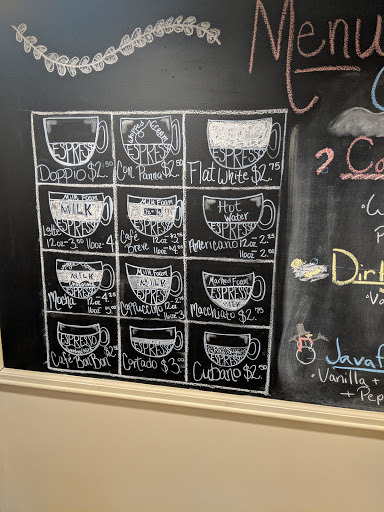 Menu
ESPRESSO
Doppio $2.50
Whipped Cream
ESPRESSO
Con Panna $2.50
ESPRESSO
Flat White $2.75
Milk Foam
MILK
ESPRESSO
Latte
12oz - 3.
16oz - 4.
Milk Foam
ESPRESSO
Cafe
Breve
Hot
Water
ESPRESSO
Americano
Milk Foam
MILK
ESPRESSO
Mocha
12oz
16oz
Milk Foam
MILK
ESPRESSO
Cappuccino
ESPRESSO
Macchiato $2.75
ESPRESSO
Cafe Bon Bon
ESPRESSO
Cortado $3.
ESPRESSO
Cubano $2.50
2 Ca
Dir
Va
Javaf
Vanilla +
+ Pep